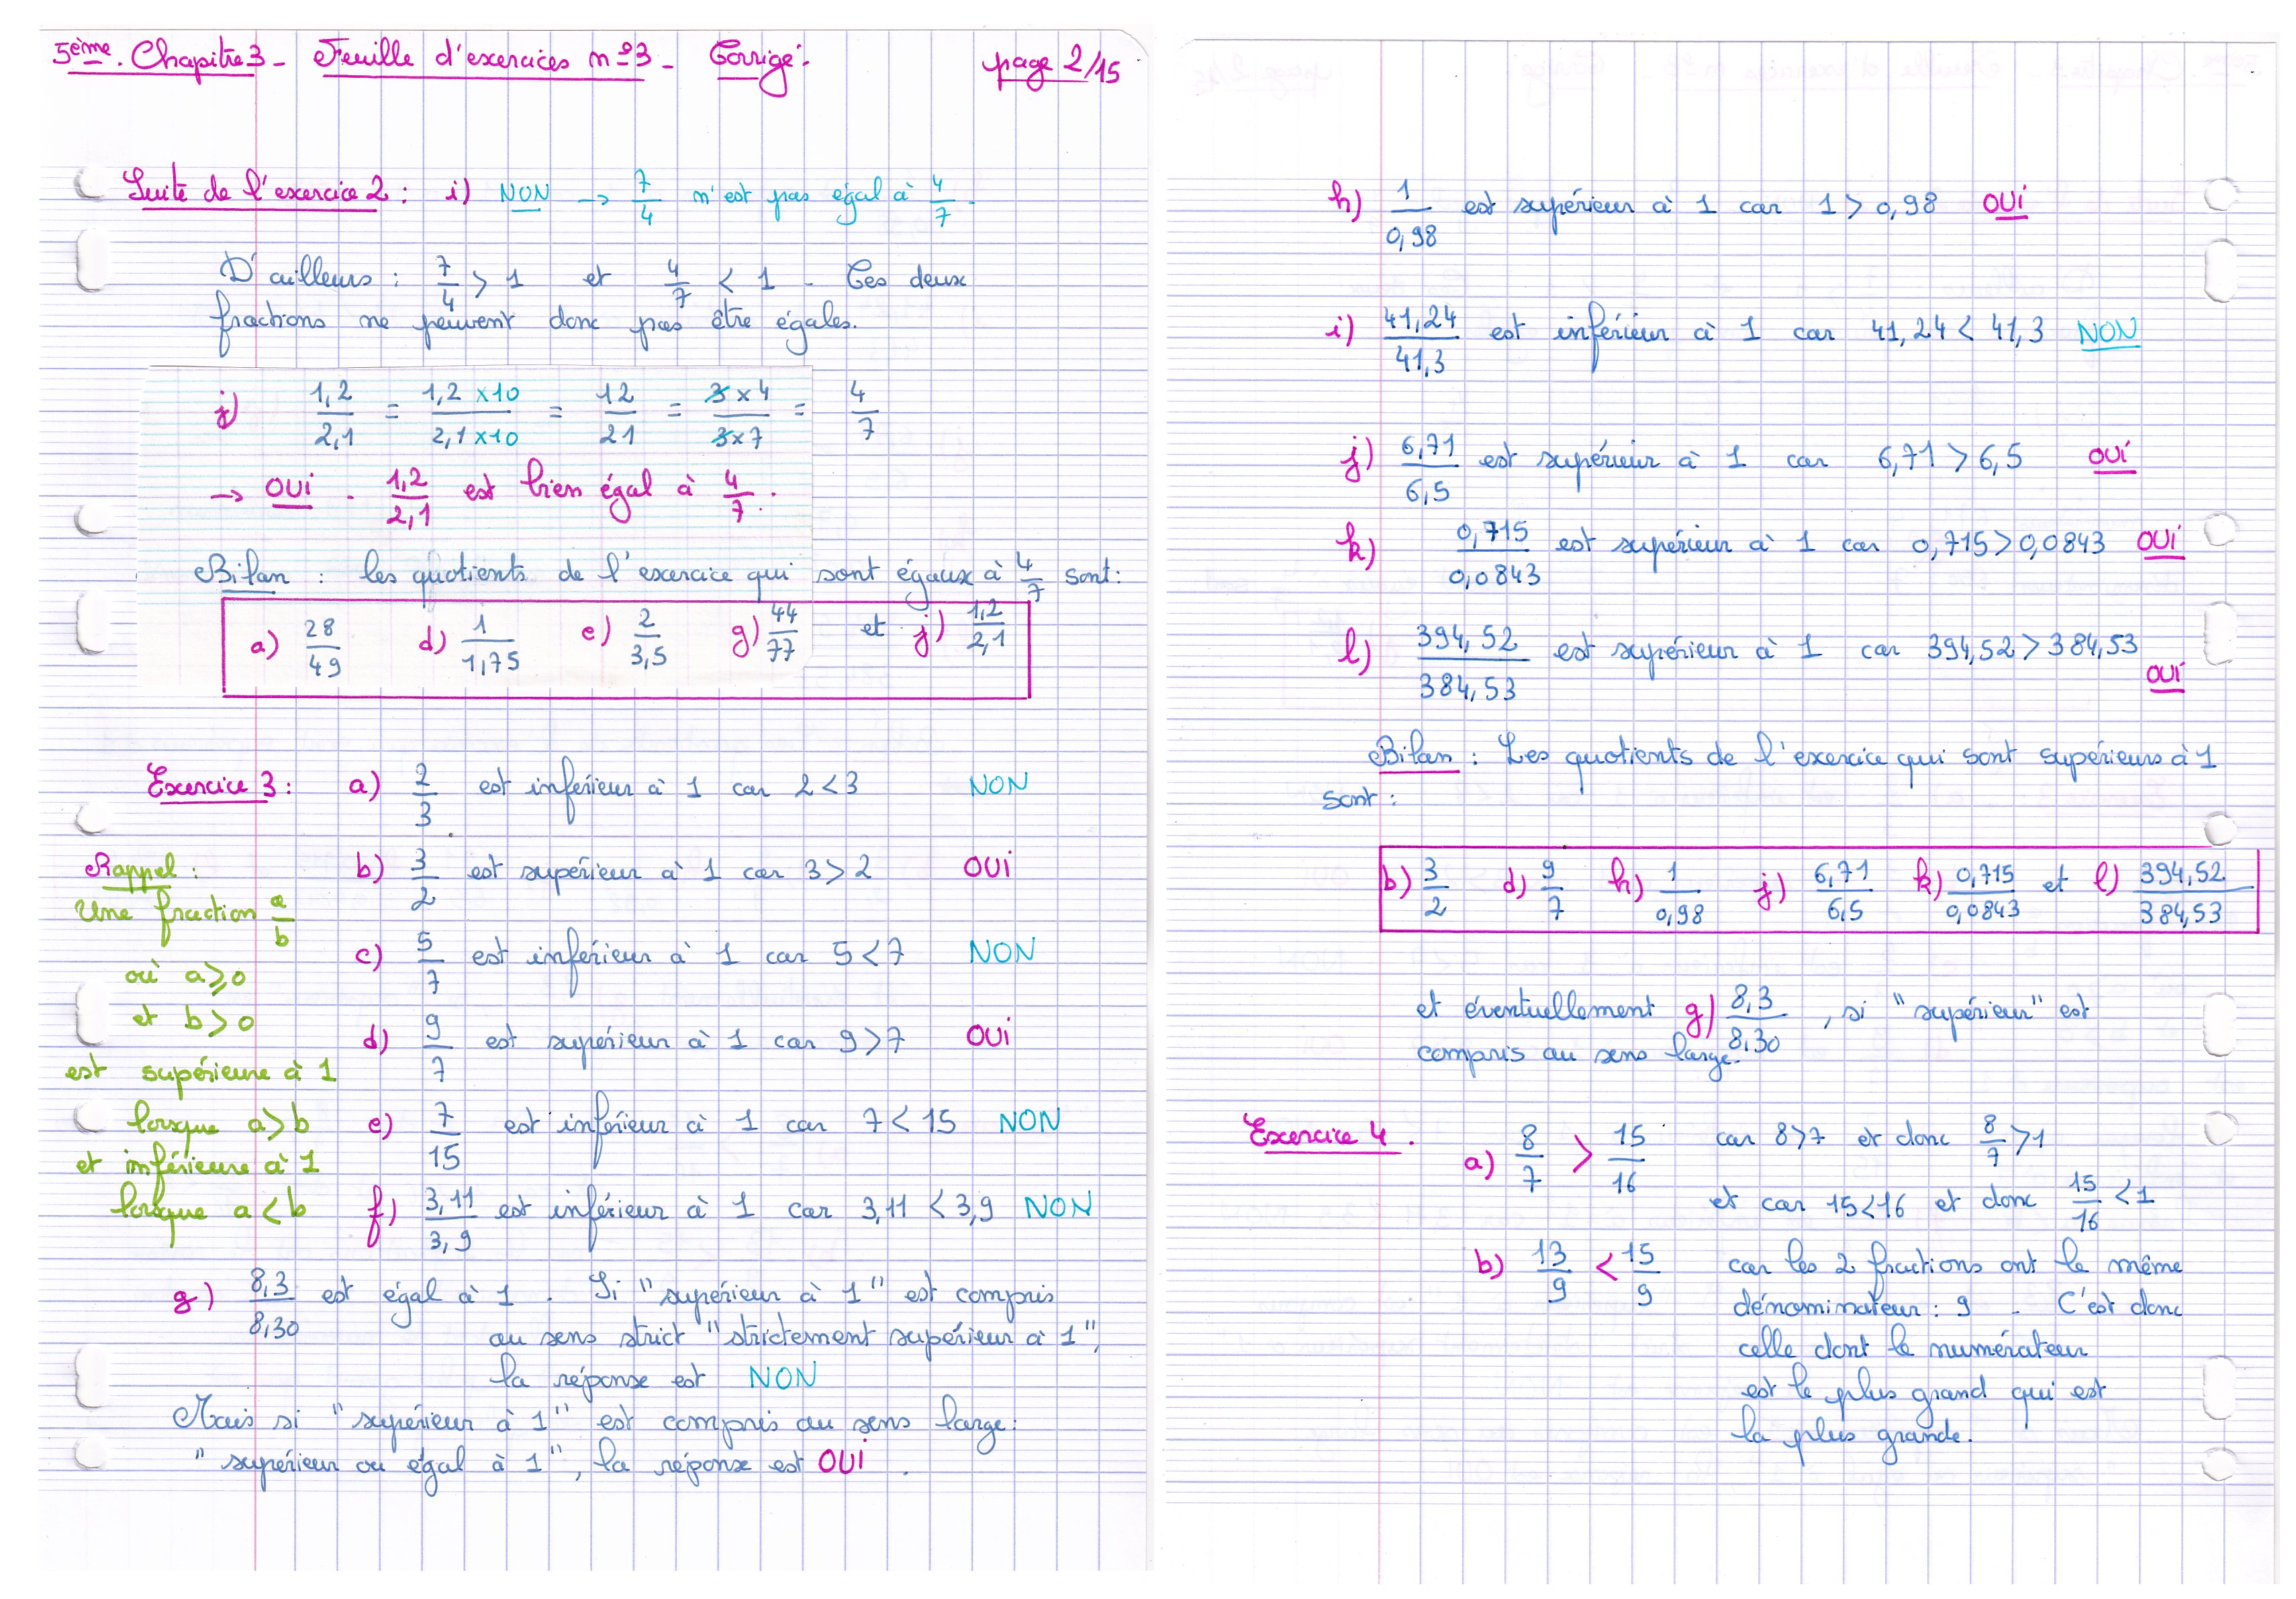 5ème. Chapitre 3 - Feuille d'exercices n°3 - Corrigé. page 2/15
Suite de l'exercice 2 : i) NON → 7/4 n'est pas égal à 4/7.
D'ailleurs : 7/4 > 1 et 4/7 < 1. Ces deux
fractions ne peuvent donc pas être égales.
j) 1,2/2,1 = 1,2 × 10/2,1 × 10 = 12/21 = 3 × 4/3 × 7 = 4/7
→ OUI. 1,2/2,1 est bien égal à 4/7.
Bilan : les quotients de l'exercice qui sont égaux à 4/7 sont :
a) 28/49 d) 1/1,75 e) 2/3,5 g) 44/77 et j) 1,2/2,1
Exercice 3 : a) 2/3 est inférieur à 1 car 2 < 3 NON
b) 3/2 est supérieur à 1 car 3 > 2 OUI
c) 5/7 est inférieur à 1 car 5 < 7 NON
d) 9/7 est supérieur à 1 car 9 > 7 OUI
e) 7/15 est inférieur à 1 car 7 < 15 NON
f) 3,11/3,9 est inférieur à 1 car 3,11 < 3,9 NON
Rappel :
Une fraction a/b
où a ⩾ 0
et b > 0
est supérieure à 1
lorsque a > b
et inférieure à 1
lorsque a < b
g) 8,3/8,30 est égal à 1. Si "supérieur à 1" est compris
au sens strict "strictement supérieur à 1",
la réponse est NON
Mais si "supérieur à 1" est compris au sens large :
"supérieur ou égal à 1", la réponse est OUI.
h) 1/0,98 est supérieur à 1 car 1 > 0,98 OUI
i) 41,24/41,3 est inférieur à 1 car 41,24 < 41,3 NON
j) 6,71/6,5 est supérieur à 1 car 6,71 > 6,5 OUI
k) 0,715/0,0843 est supérieur à 1 car 0,715 > 0,0843 OUI
l) 394,52/384,53 est supérieur à 1 car 394,52 > 384,53
OUI
Bilan : Les quotients de l'exercice qui sont supérieurs à 1
sont :
b) 3/2 d) 9/7 h) 1/0,98 j) 6,71/6,5 k) 0,715/0,0843 et l) 394,52/384,53
et éventuellement g) 8,3/8,30, si "supérieur" est
compris au sens large.
Exercice 4. a) 8/7 > 15/16 car 8 > 7 et donc 8/7 > 1
et car 15 < 16 et donc 15/16 < 1
b) 13/9 < 15/9 car les 2 fractions ont le même
dénominateur : 9 - C'est donc
celle dont le numérateur
est le plus grand qui est
la plus grande.